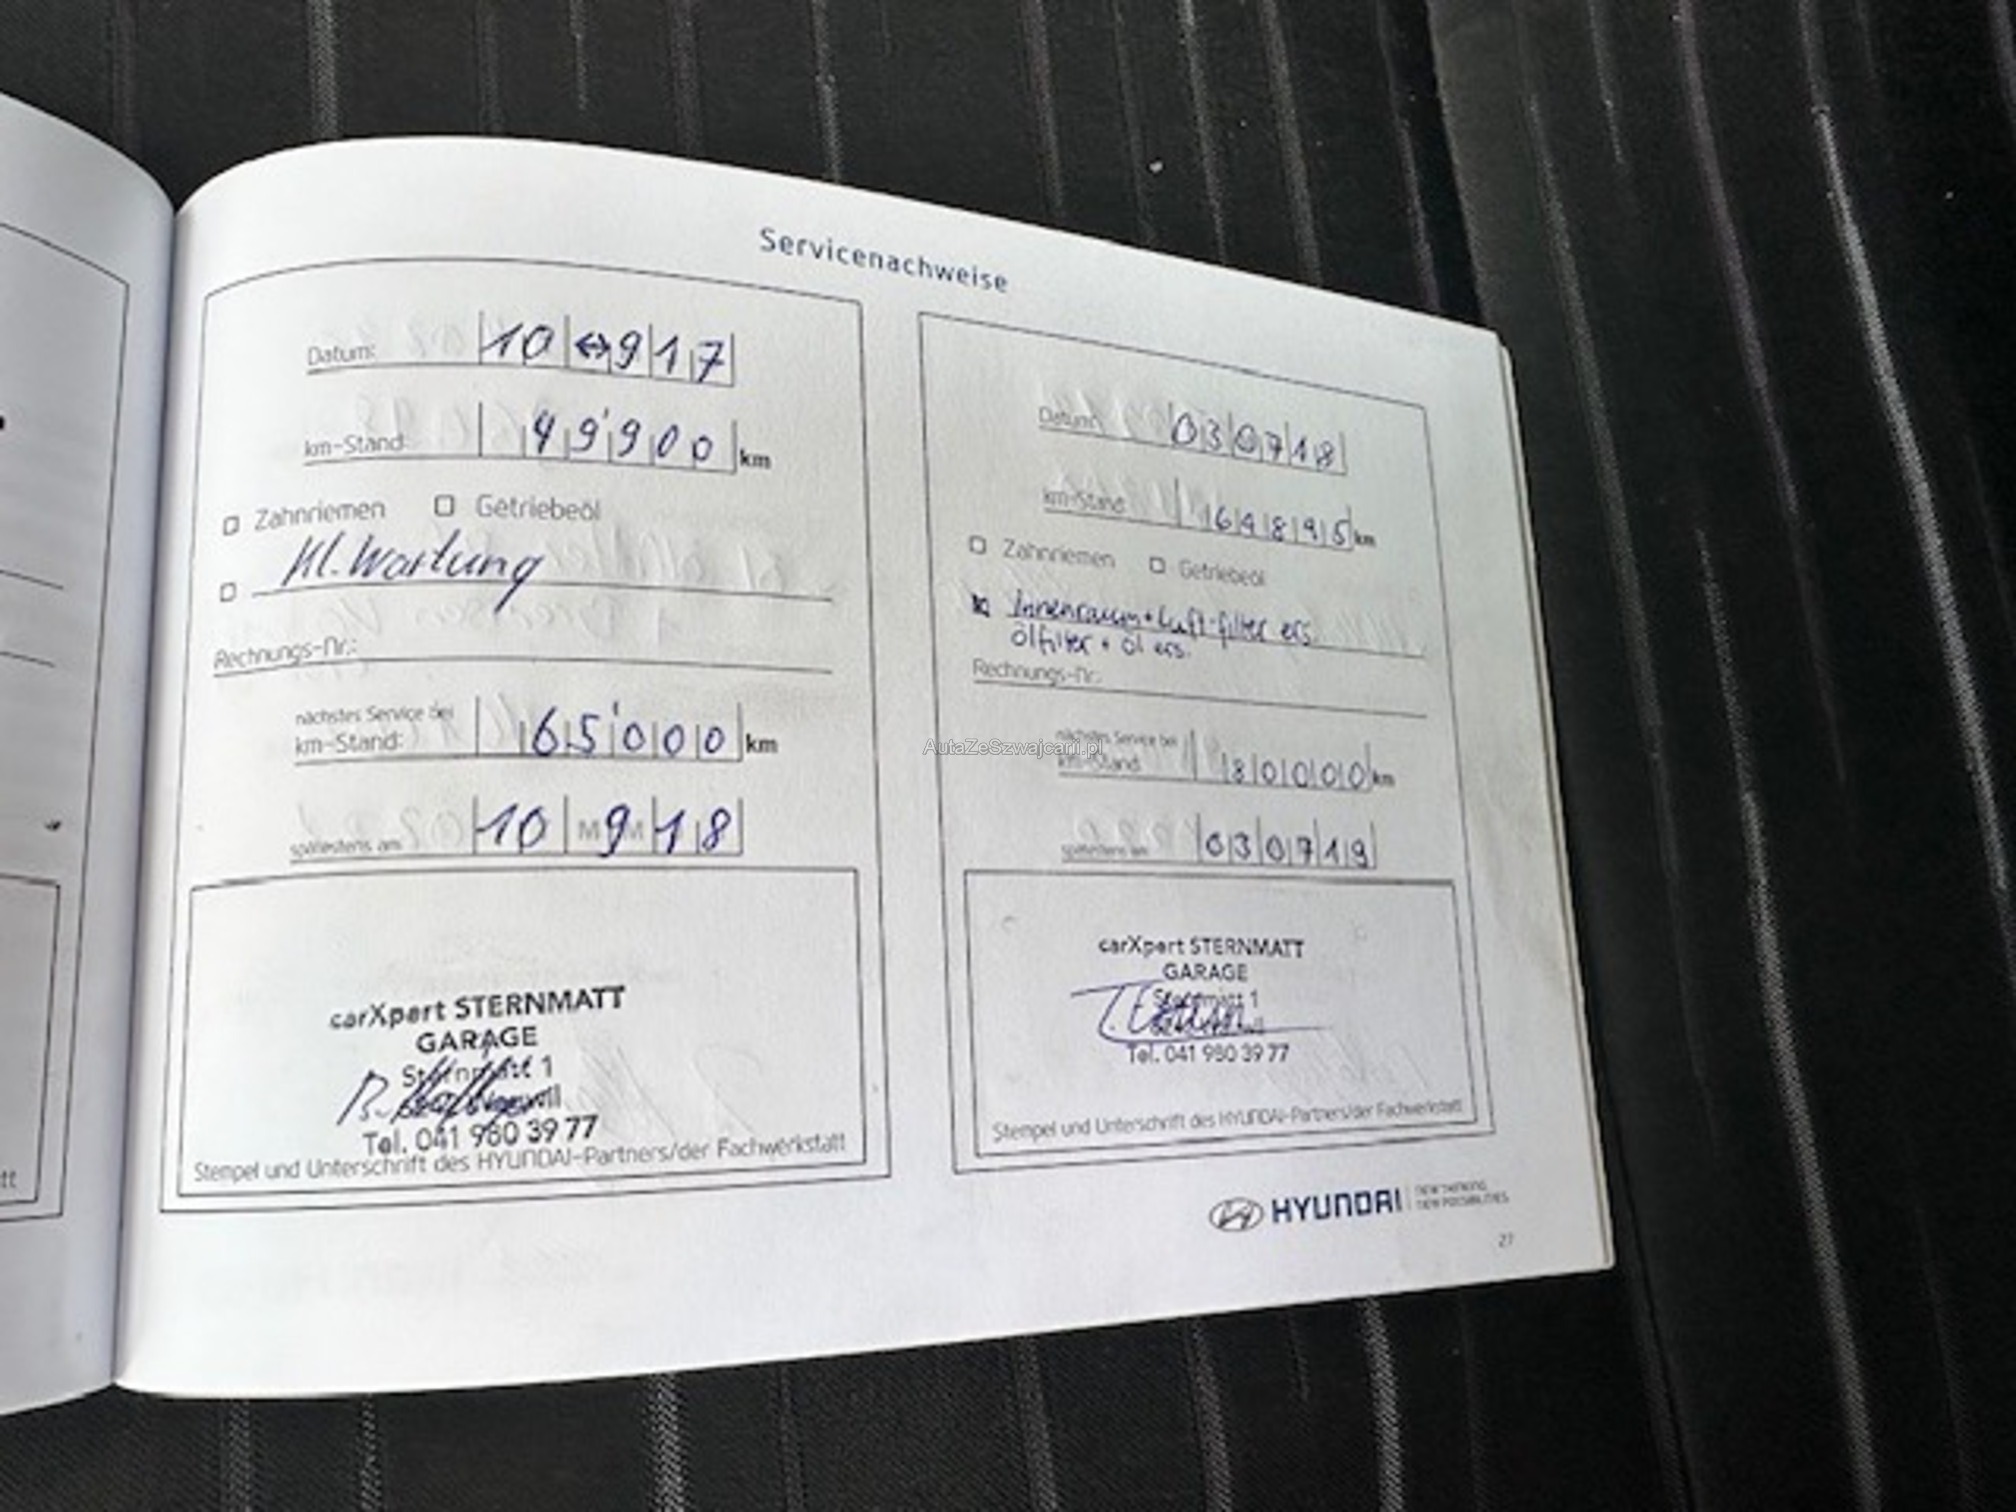 Servicenachweise
Datum: 10 ↔ 9 17
km-Stand: 49'900 km
Zahnriemen Getriebeöl
Kl. Wartung
Rechnungs-Nr.:
nächstes Service bei
km-Stand: 65'000 km
spätestens am: 10 9 18
carXpert STERNMATT
GARAGE
Sternmatt 1
Tel. 041 980 39 77
Stempel und Unterschrift des HYUNDAI-Partners/der Fachwerkstatt
Datum: 030718
km-Stand 64895 km
Zahnriemen Getriebeöl
Innenraum + Luft-filter ers.
ölfilter + öl ers.
Rechnungs-Nr.
nächstes Service bei
km-Stand 80000 km
spätestens am 030719
carXpert STERNMATT
GARAGE
Sternmatt 1
Tel. 041 980 39 77
Stempel und Unterschrift des HYUNDAI-Partners/der Fachwerkstatt
HYUNDAI
NEW THINKING.
NEW POSSIBILITIES.
27
AutaZeSzwajcarii.pl